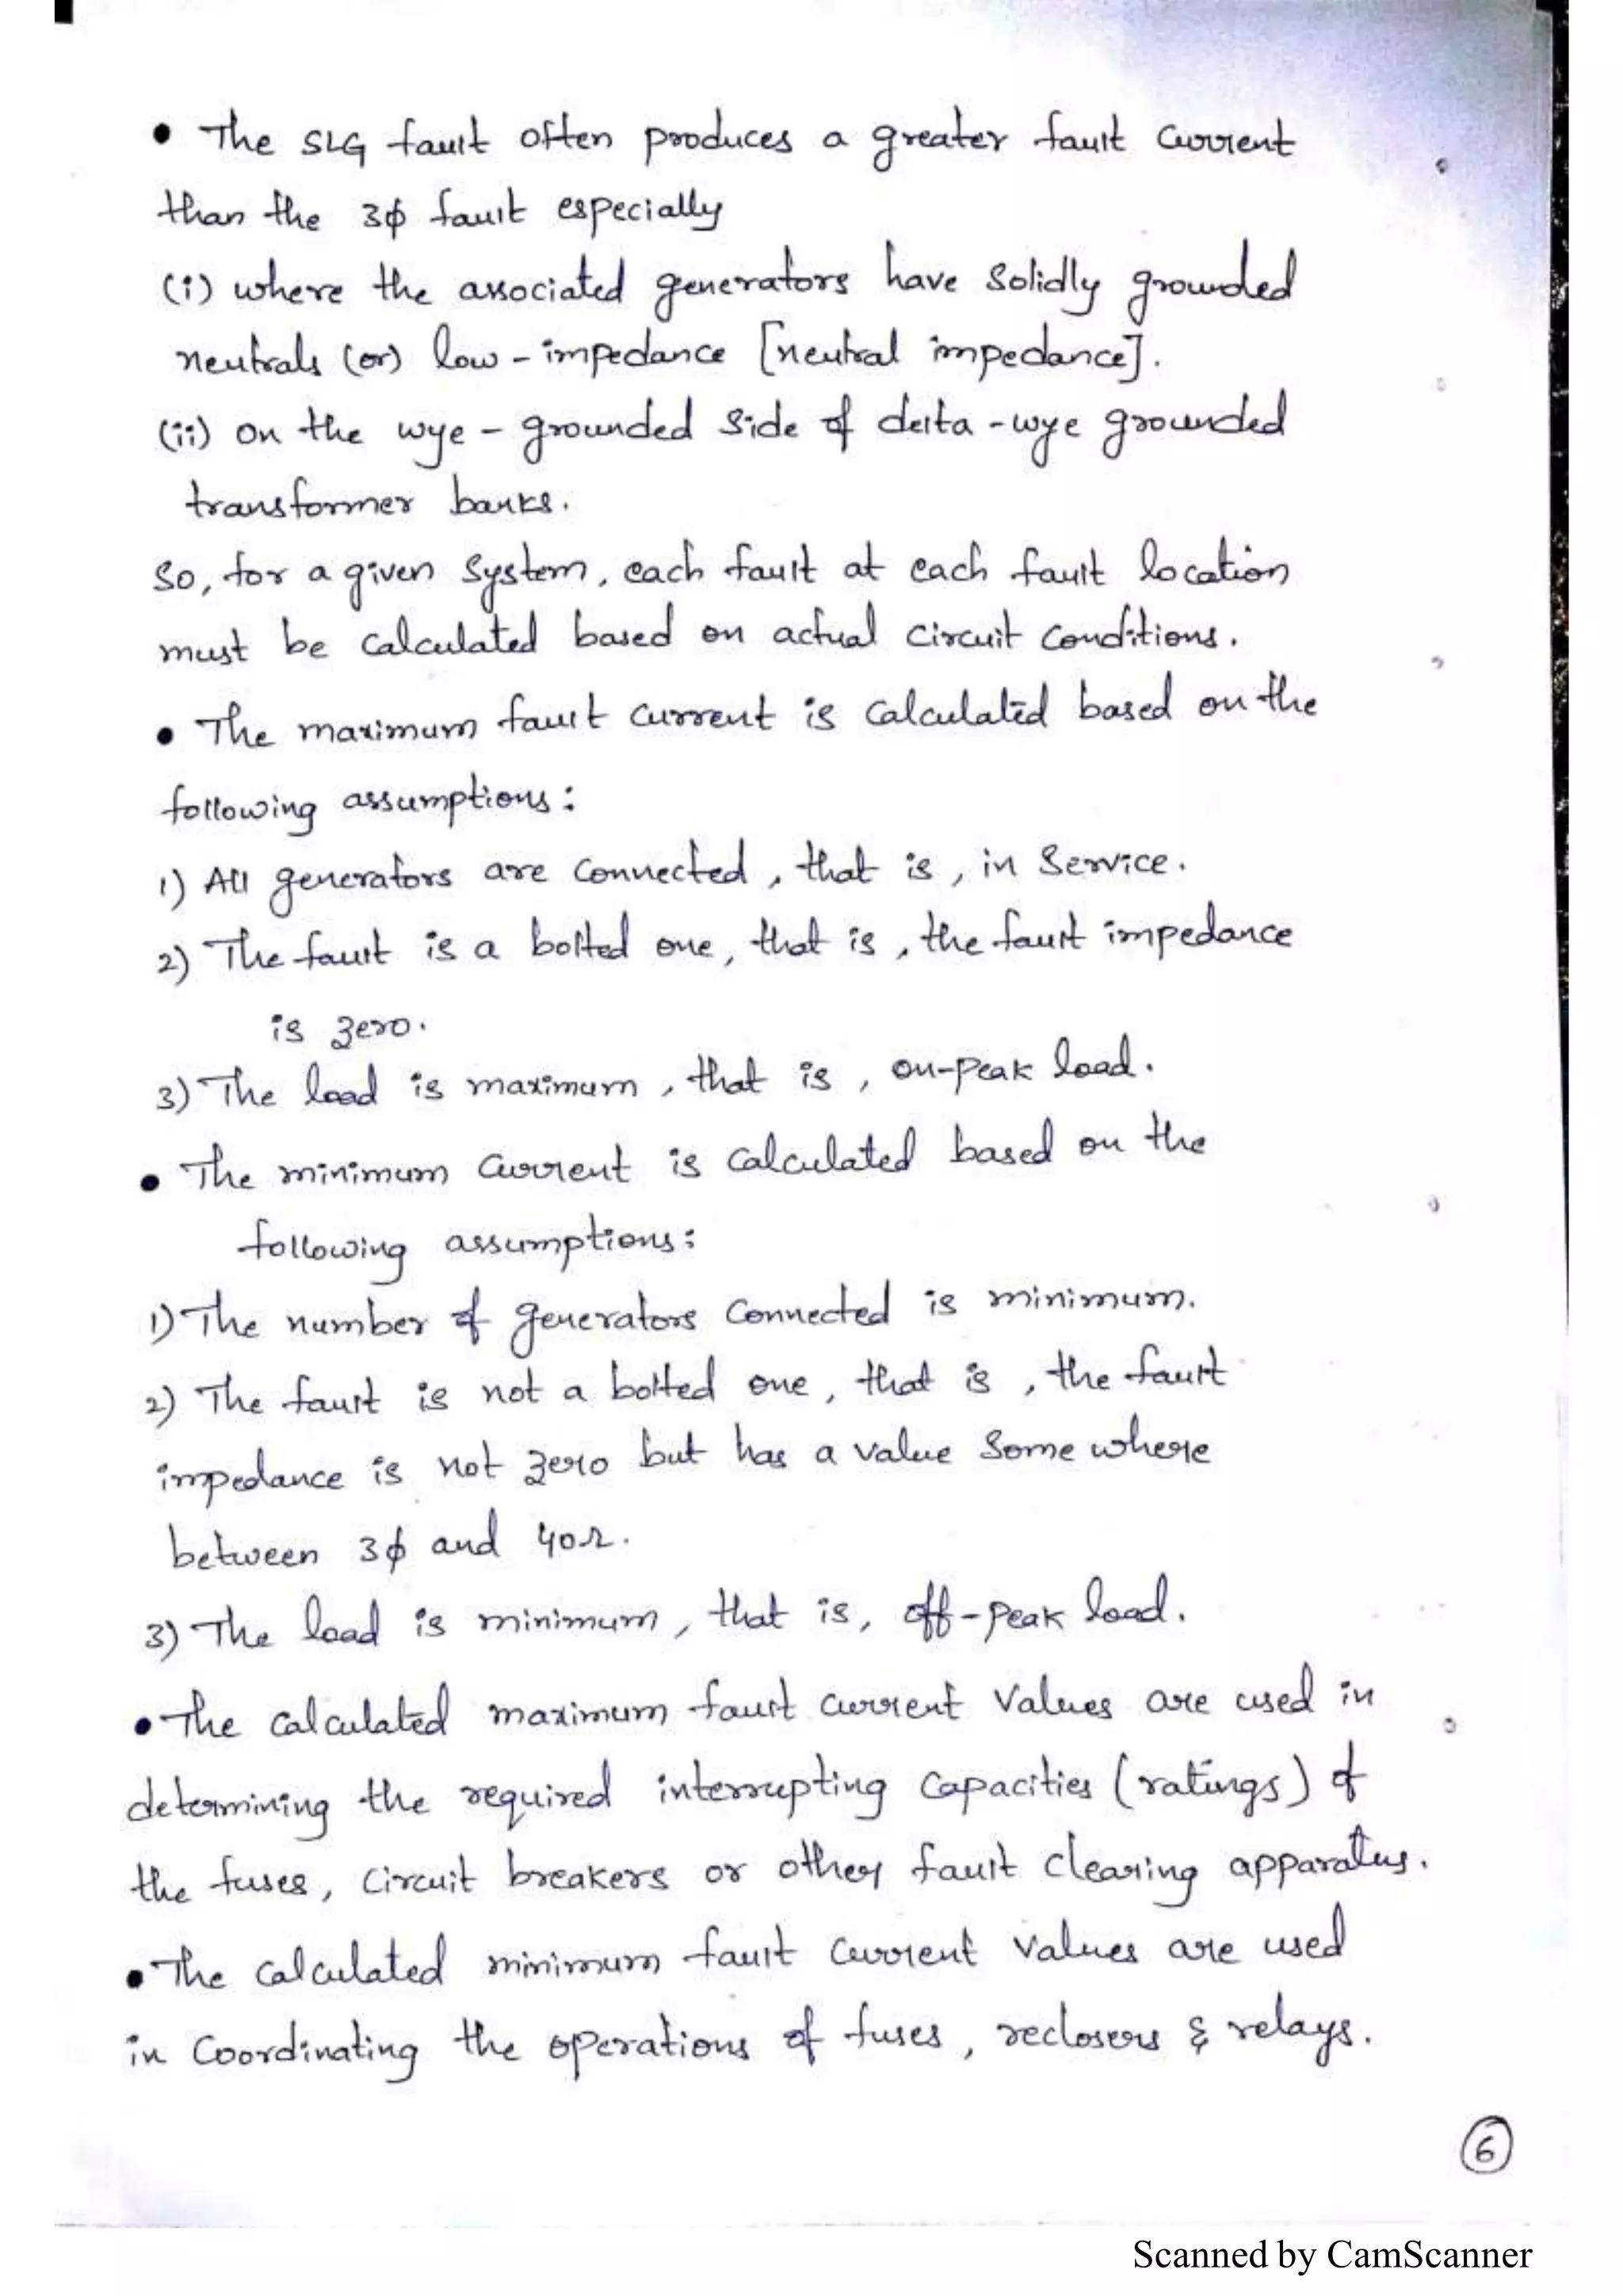 • The SLG fault often produces a greater fault current
than the 3ϕ fault especially
(i) where the associated generators have solidly grounded
neutrals (or) low-impedance [neutral impedance].
(ii) on the wye-grounded side of delta-wye grounded
transformer banks.
So, for a given system, each fault at each fault location
must be calculated based on actual circuit conditions.
• The maximum fault current is calculated based on the
following assumptions:
1) All generators are connected, that is, in service.
2) The fault is a bolted one, that is, the fault impedance
is zero.
3) The load is maximum, that is, on-peak load.
• The minimum current is calculated based on the
following assumptions:
1) The number of generators connected is minimum.
2) The fault is not a bolted one, that is, the fault
impedance is not zero but has a value some where
between 3ϕ and 40Ω.
3) The load is minimum, that is, off-peak load.
• The calculated maximum fault current values are used in
determining the required interrupting capacities (ratings) of
the fuses, circuit breakers or other fault clearing apparatus.
• The calculated minimum fault current values are used
in coordinating the operations of fuses, reclosers & relays.
6
Scanned by CamScanner